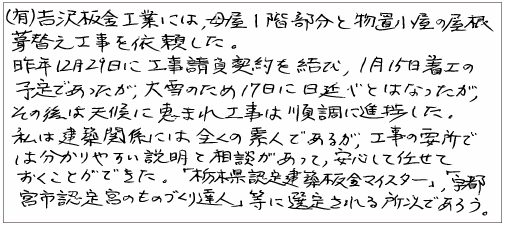 (有)吉沢板金工業には,母屋1階部分と物置小屋の屋根
葺替え工事を依頼した。
昨年12月29日に工事請負契約を結び,1月15日着工の
予定であったが,大雪のため17日に日延べとはなったが,
その後は天候に恵まれ工事は順調に進捗した。
私は建築関係には全くの素人であるが,工事の要所で
は分かりやすい説明と相談があって,安心して任せて
おくことができた。「栃木県認定建築板金マイスター」,「宇都
宮市認定宮のものづくり達人」等に選定される所以であろう。